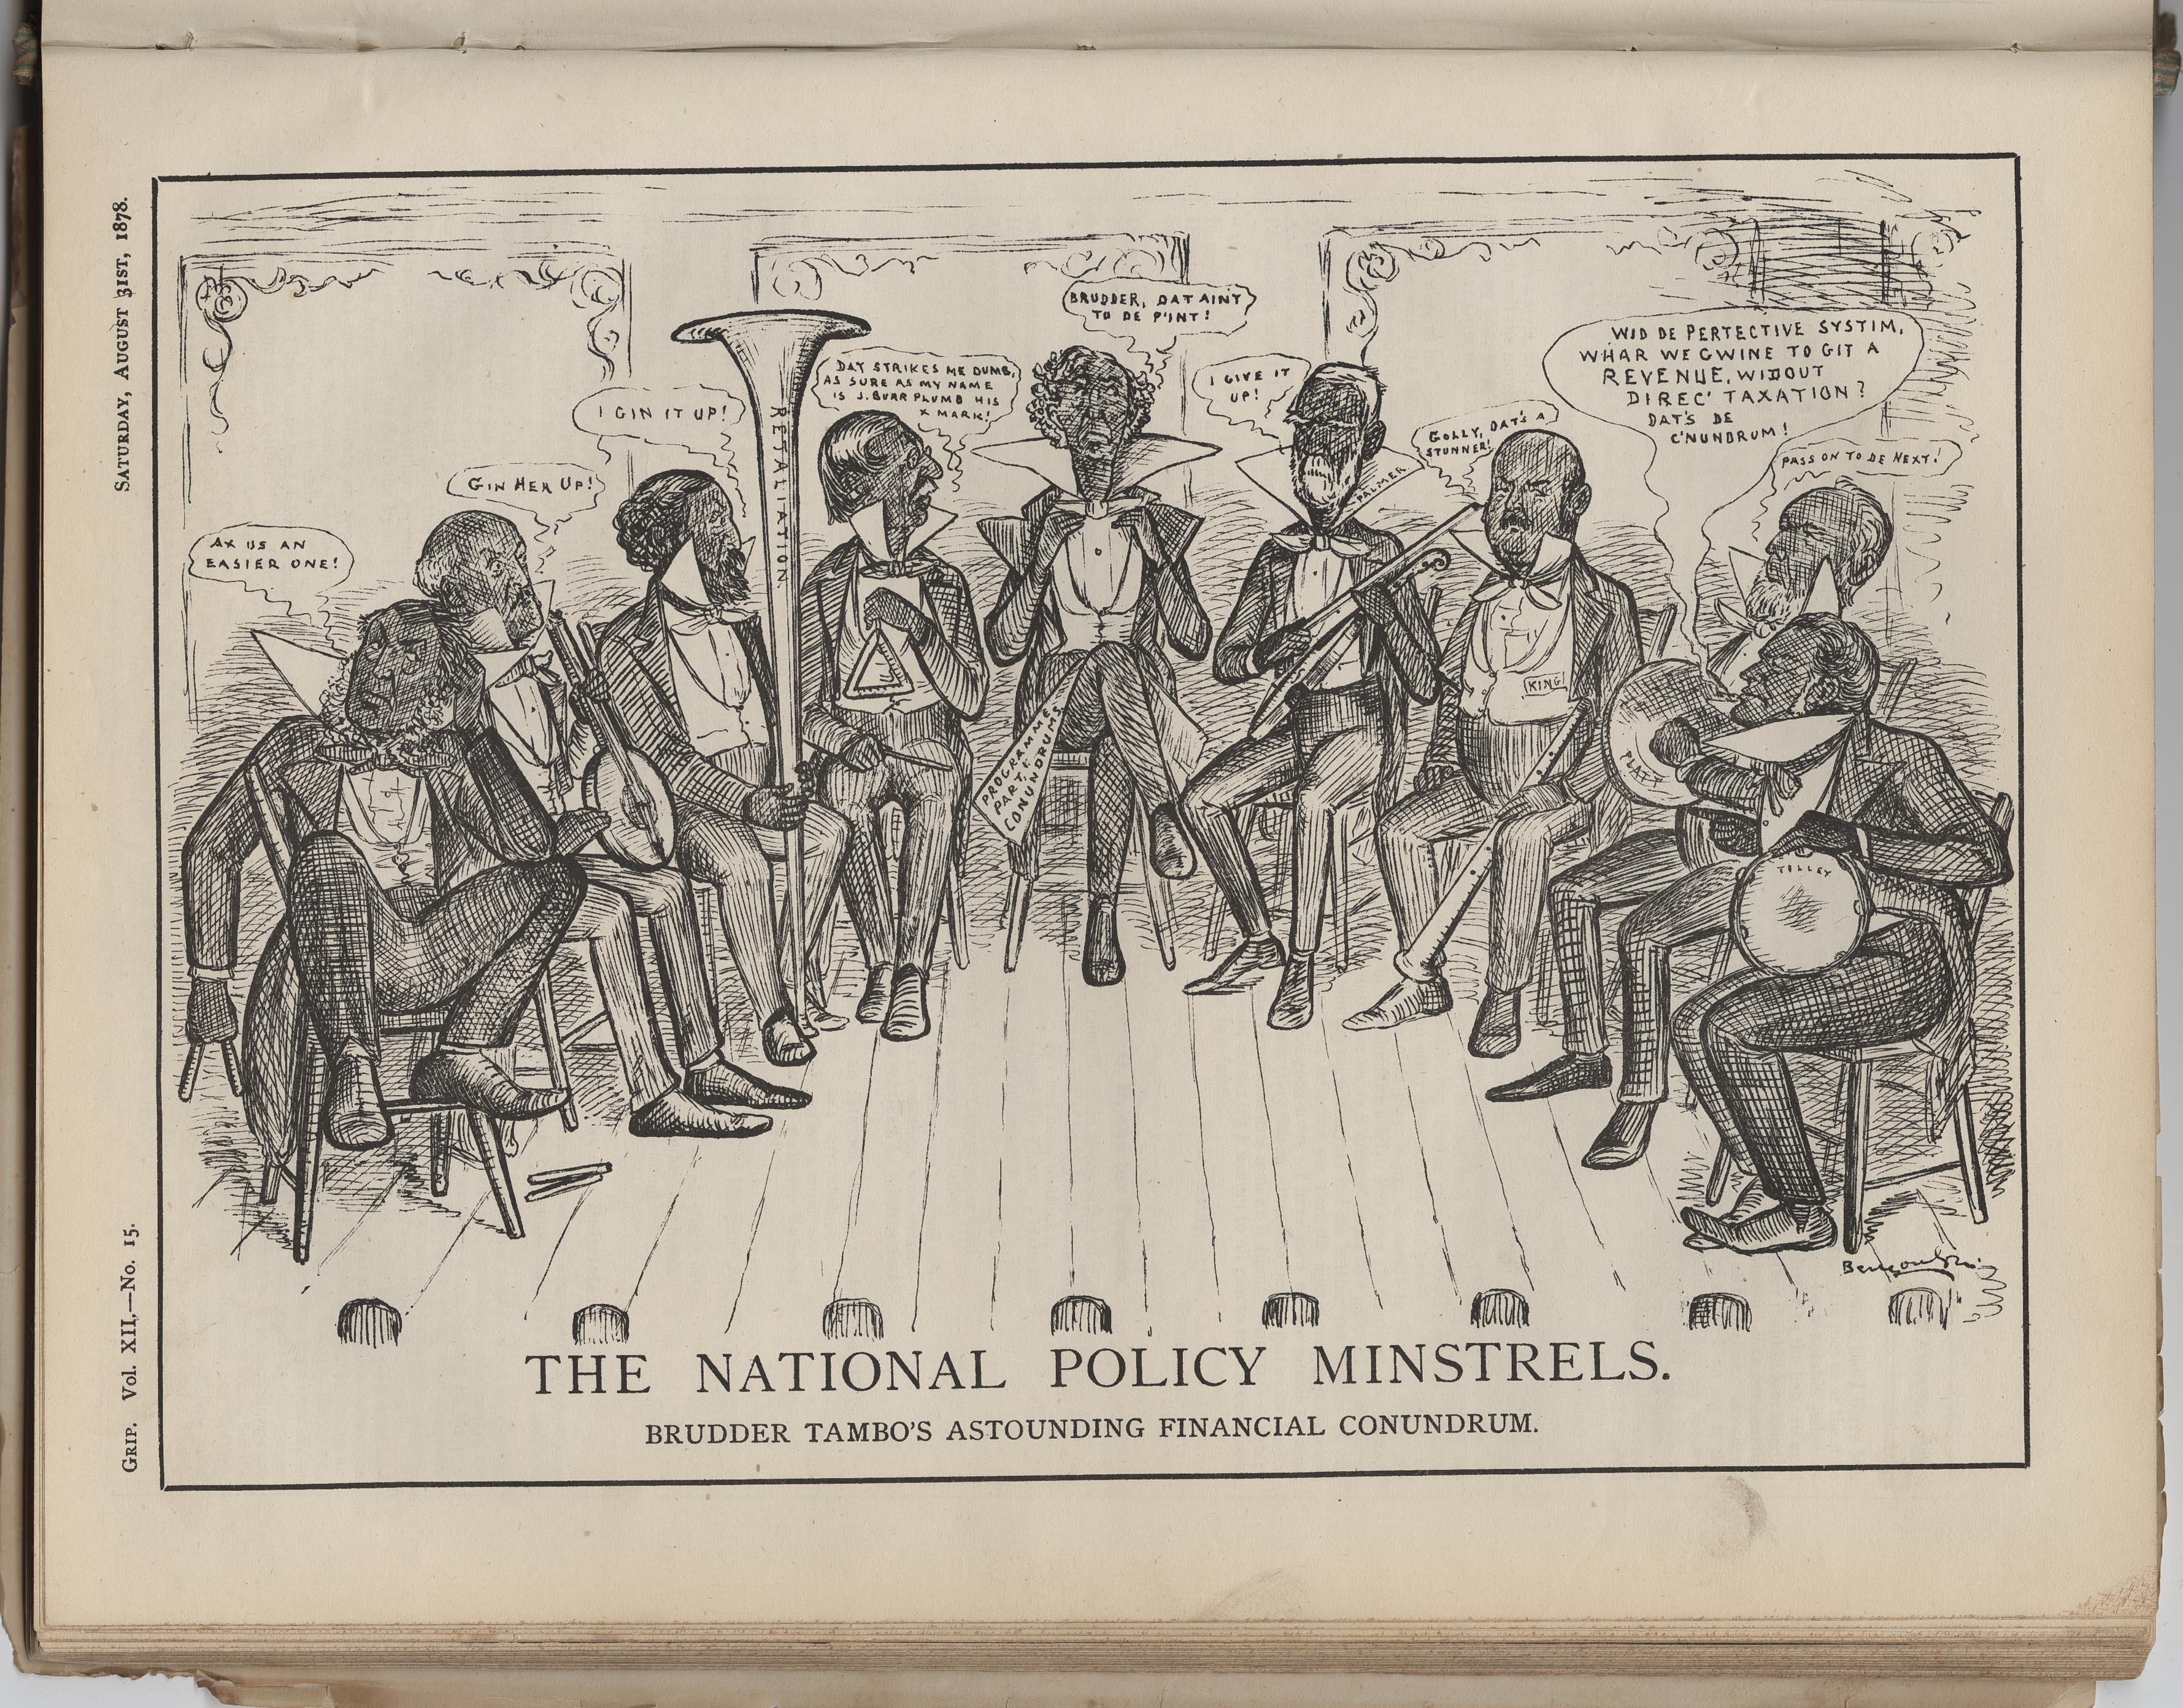 SATURDAY, AUGUST 31ST, 1878.
GRIP. Vol. XII,—No. 15.
AX US AN
EASIER ONE!
GIN HER UP!
I GIN IT UP!
RETALIATION
DAT STRIKES ME DUMB,
AS SURE AS MY NAME
IS J. BURR PLUMB HIS
X MARK!
BRUDDER, DAT AINT
TO DE P'INT!
PROGRAMME
PART I
CONUNDRUMS
I GIVE IT
UP!
PALMER
GOLLY, DAT'S A
STUNNER!
KING
WID DE PERTECTIVE SYSTIM,
WHAR WE GWINE TO GIT A
REVENUE, WIDOUT
DIREC' TAXATION?
DAT'S DE
C'NUNDRUM!
PASS ON TO DE NEXT!
PLATT
TILLEY
Bengough
THE NATIONAL POLICY MINSTRELS.
BRUDDER TAMBO'S ASTOUNDING FINANCIAL CONUNDRUM.